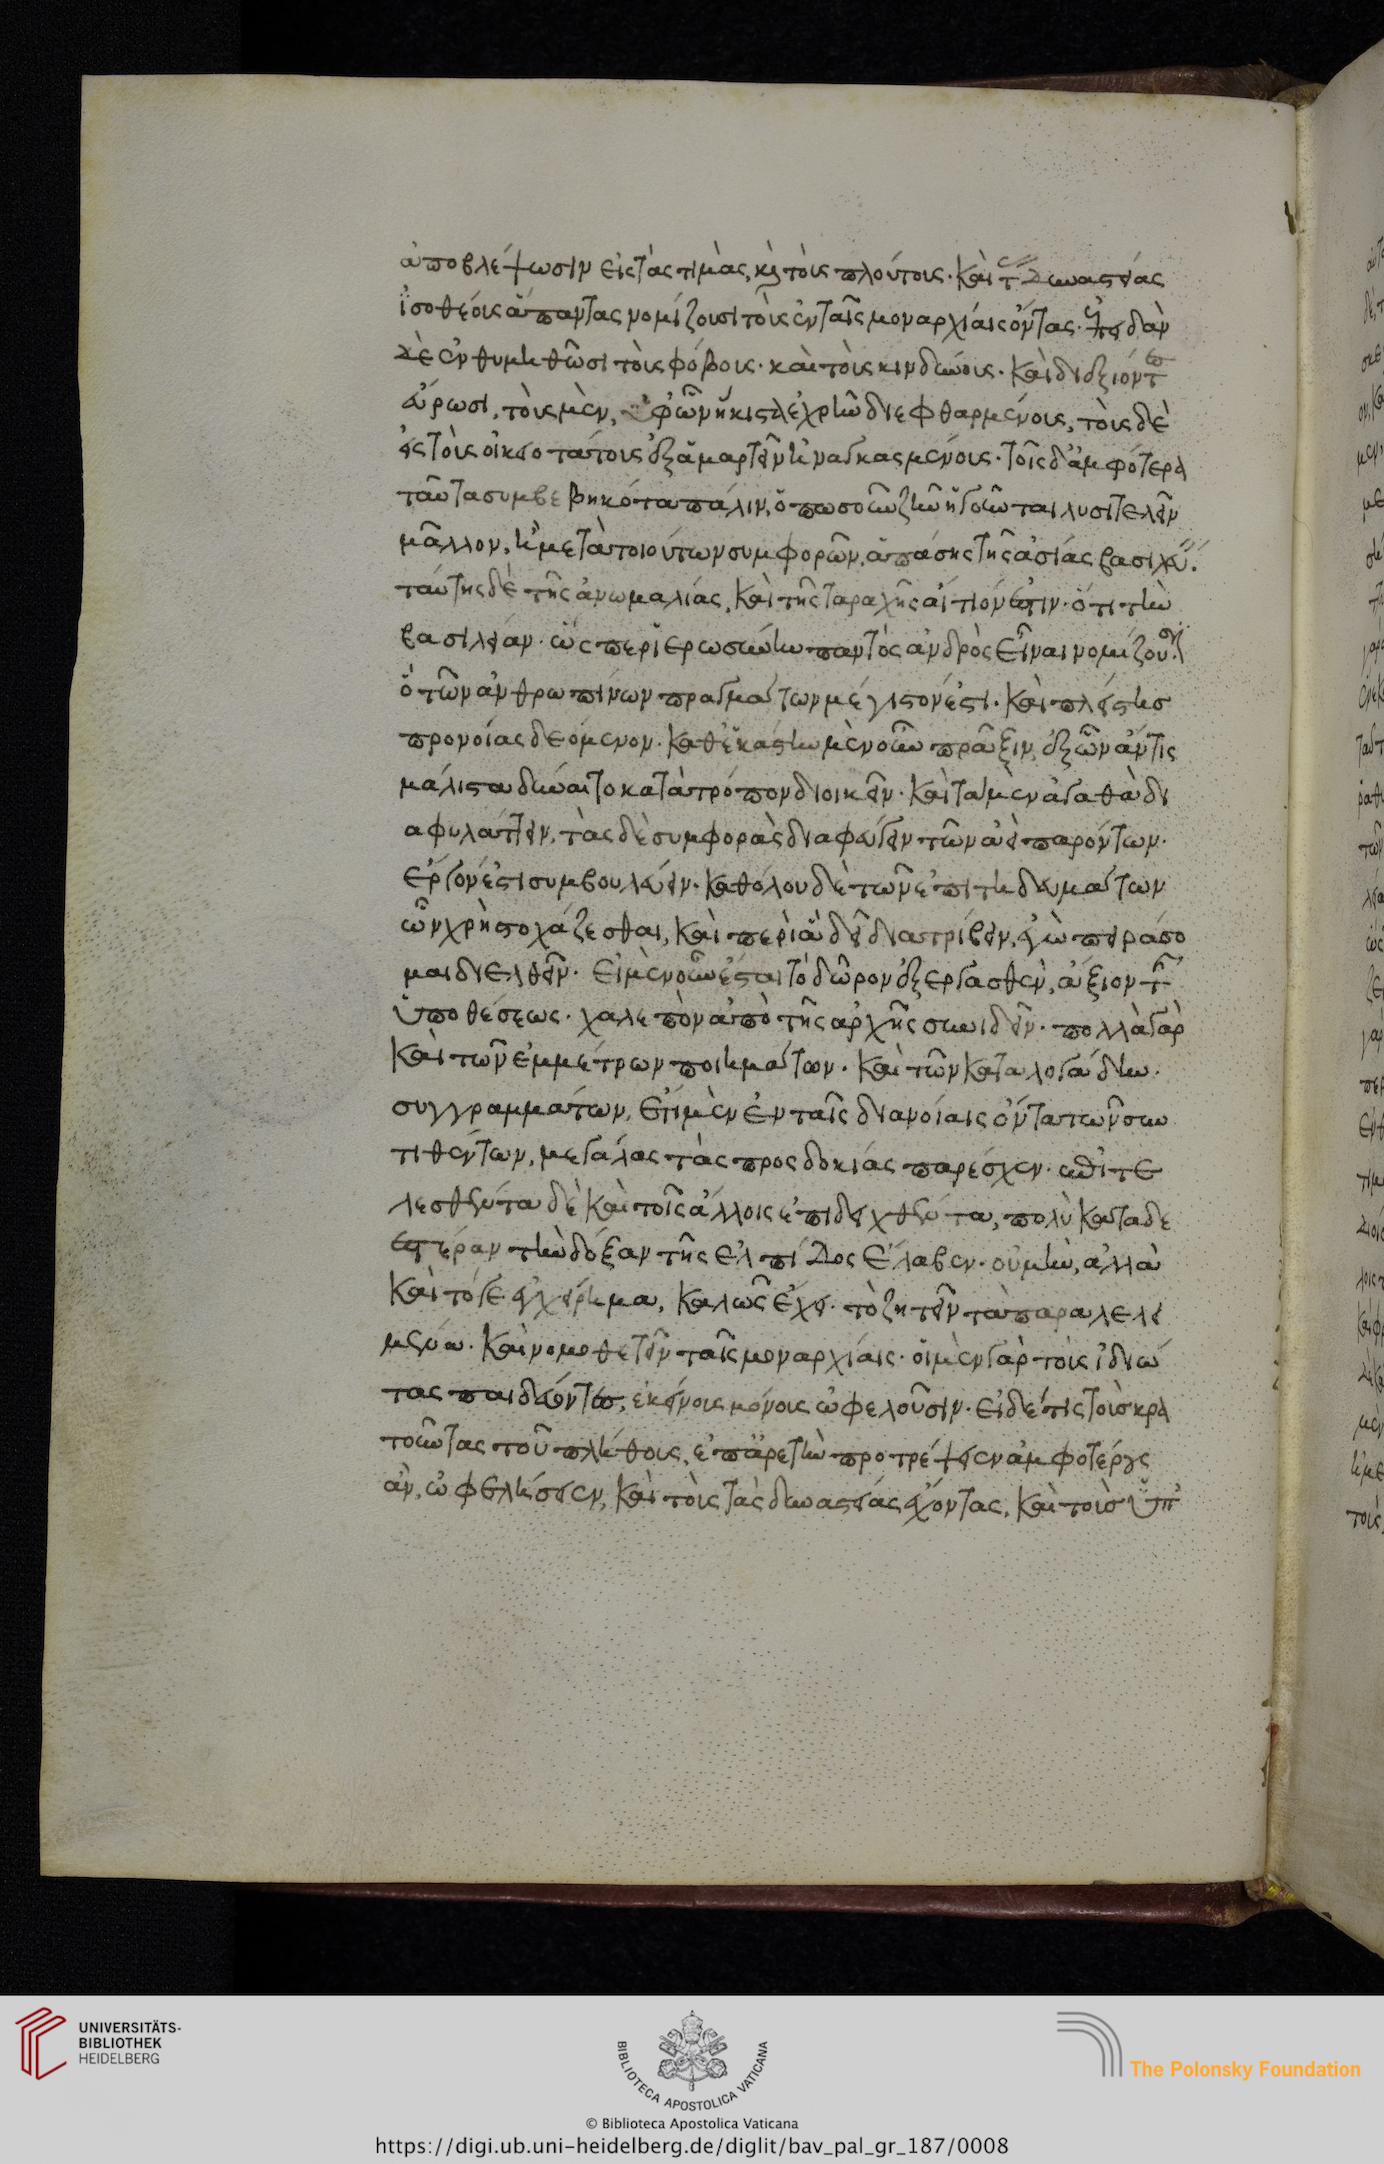 ἀποβλέψωσιν εἰς τὰς τιμὰς, κὶ τοὺς πλούτους. καὶ τ δυναστείας
ἰσοθέους ἅπαντας νομίζουσι τοὺς ἐν ταῖς μοναρχίαις ὄντας. ἐπειδὰν
δὲ ἐνθυμηθῶσι τοὺς φόβους. καὶ τοὺς κινδύνους. καὶ διεξιόντες
εὕρωσι, τοὺς μὲν, ὑφ' ὧν ἥκιστα ἐχρῆν διεφθαρμένους, τοὺς δὲ
εἰς τοὺς οἰκειοτάτους ἐξαμαρτεῖν ἠναγκασμένους. τοῖς δ' ἀμφότερα
ταῦτα συμβεβηκότα πάλιν, ὁπωσοῦν ζῆν ἡγοῦνται λυσιτελεῖν
μᾶλλον, ἢ μετὰ τοιούτων συμφορῶν, ἁπάσης τῆς ἀσίας βασιλεύειν.
ταύτης δὲ τῆς ἀνωμαλίας, καὶ τῆς ταραχῆς αἴτιόν ἐστιν. ὅτι τὴν
βασιλείαν. ὥσπερ ἱερωσύνην παντὸς ἀνδρὸς εἶναι νομίζουσιν.
ὃ τῶν ἀνθρωπίνων πραγμάτων μέγιστόν ἐστι. καὶ πλείστης
προνοίας δεόμενον. καθ' ἑκάστην μὲν οὖν πρᾶξιν, ἐξ ὧν ἄν τις
μάλιστα δύναιτο κατὰ τρόπον διοικεῖν. καὶ τὰ μὲν ἀγαθὰ δι
αφυλάττειν, τὰς δὲ συμφορὰς διαφεύγειν τῶν ἀεὶ παρόντων.
ἔργόν ἐστι συμβουλεύειν. καθόλου δὲ τῶν ἐπιτηδευμάτων
ὧν χρὴ στοχάζεσθαι, καὶ περὶ ἃ δεῖ διατρίβειν, ἐγὼ πειράσο
μαι διελθεῖν. εἰ μὲν οὖν ἔσται τὸ δῶρον ἐξεργασθὲν, ἄξιον τῆς
ὑποθέσεως. χαλεπὸν ἀπὸ τῆς ἀρχῆς συνιδεῖν. πολλὰ γὰρ
καὶ τῶν ἐμμέτρων ποιημάτων. καὶ τῶν καταλογάδην.
συγγραμμάτων, ἔτι μὲν ἐν ταῖς διανοίαις ὄντα τῶν συν
τιθέντων, μεγάλας τὰς προσδοκίας παρέσχεν. ἐπιτε
λεσθέντα δὲ καὶ τοῖς ἄλλοις ἐπιδειχθέντα, πολὺ καταδε
εστέραν τὴν δόξαν τῆς ἐλπίδος ἔλαβεν. οὐ μὴν, ἀλλὰ
καὶ τό γε ἐχείρημα, καλῶς ἔχει. τὸ ζητεῖν τὰ παραλελει
μμένα. καὶ νομοθετεῖν ταῖς μοναρχίαις. οἱ μὲν γὰρ τοὺς ἰδιώ
τας παιδεύοντες, ἐκείνους μόνους ὠφελοῦσιν. εἰ δέ τις τοὺς κρα
τοῦντας τοῦ πλήθους, ἐπ' ἀρετὴν προτρέψειεν ἀμφοτέρους
ἂν, ὠφελήσειεν, καὶ τοὺς τὰς δυναστείας ἔχοντας, καὶ τοὺς ὑπ'
UNIVERSITÄTS-
BIBLIOTHEK
HEIDELBERG
BIBLIOTECA APOSTOLICA VATICANA
The Polonsky Foundation
© Biblioteca Apostolica Vaticana
https://digi.ub.uni-heidelberg.de/diglit/bav_pal_gr_187/0008